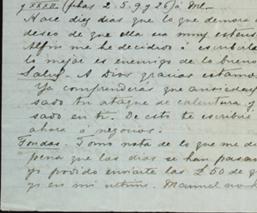 y XXXII. (fhas 2. 5. 9 y 26) á Ml.
Hace diez dias que lo que demora
deseo de que ella sea muy estens
Alfin me he decidido á escribirla
lo mejor es enemigo de lo bueno
Salud. A Dios gracias estamos
Ya comprenderas que ansiedad
sado tu ataque de calentura y
sado en ti. De esto te escribi
ahora á negocios.
Fondos. Tomo nota de lo que me d
pena que los dias se han pasa
yo podido enviarte las £ 50 de q
yo en mi ultima. Manuel no h